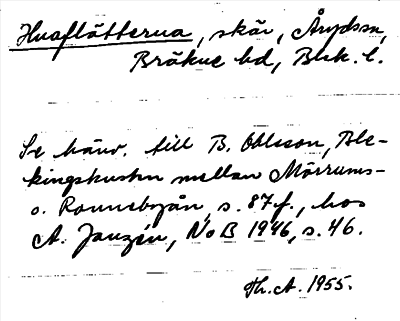 Huaflätterna, skär, Åryds sn,
Bräkne hd, Blek. l.
Se hänv. till B. Ohlsson, Ble-
kingskusten mellan Mörrums-
o. Ronnebyån, s. 87 f., hos
A. Janzén, NoB 1946, s. 46.
Th. A. 1955.